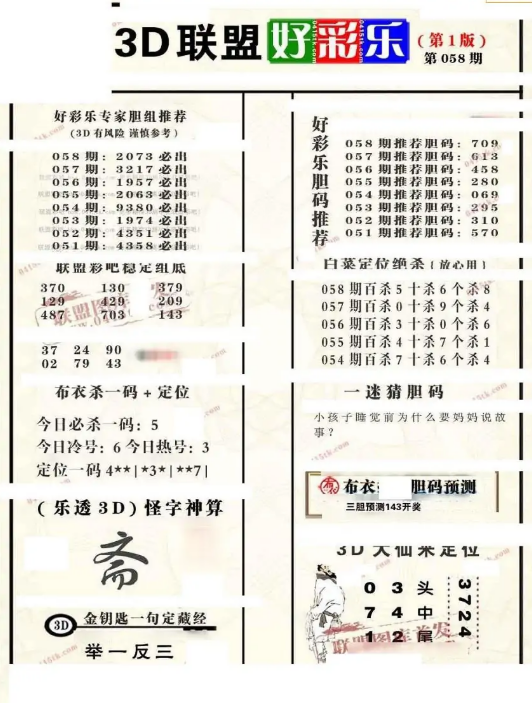 3D联盟好彩乐(第1版)
第058期
好彩乐专家胆组推荐
(3D有风险 谨慎参考)
058期: 2073必出
057期: 3217必出
056期: 1957必出
055期: 2063必出
054期: 9380必出
053期: 1974必出
052期: 4351必出
051期: 4358必出
联盟彩吧稳定组底
370 130 379
129 429 209
487 703 143
37 24 90
02 79 43
布衣杀一码+定位
今日必杀一码: 5
今日冷号: 6 今日热号: 3
定位一码 4**|*3*|**7|
(乐透3D)怪字神算
斋
3D 金钥匙一句定藏经
举一反三
好彩乐胆码推荐
058期推荐胆码: 709
057期推荐胆码: 613
056期推荐胆码: 458
055期推荐胆码: 280
054期推荐胆码: 069
053期推荐胆码: 295
052期推荐胆码: 310
051期推荐胆码: 570
白菜定位绝杀(放心用)
058期百杀5十杀6个杀8
057期百杀0十杀9个杀4
056期百杀3十杀0个杀6
055期百杀4十杀7个杀1
054期百杀7十杀6个杀4
一迷猜胆码
小孩子睡觉前为什么要妈妈说故
事?
布衣 胆码预测
三胆预测143开奖
3D大仙来定位
0 3 头
7 4 中
1 2 尾
3724